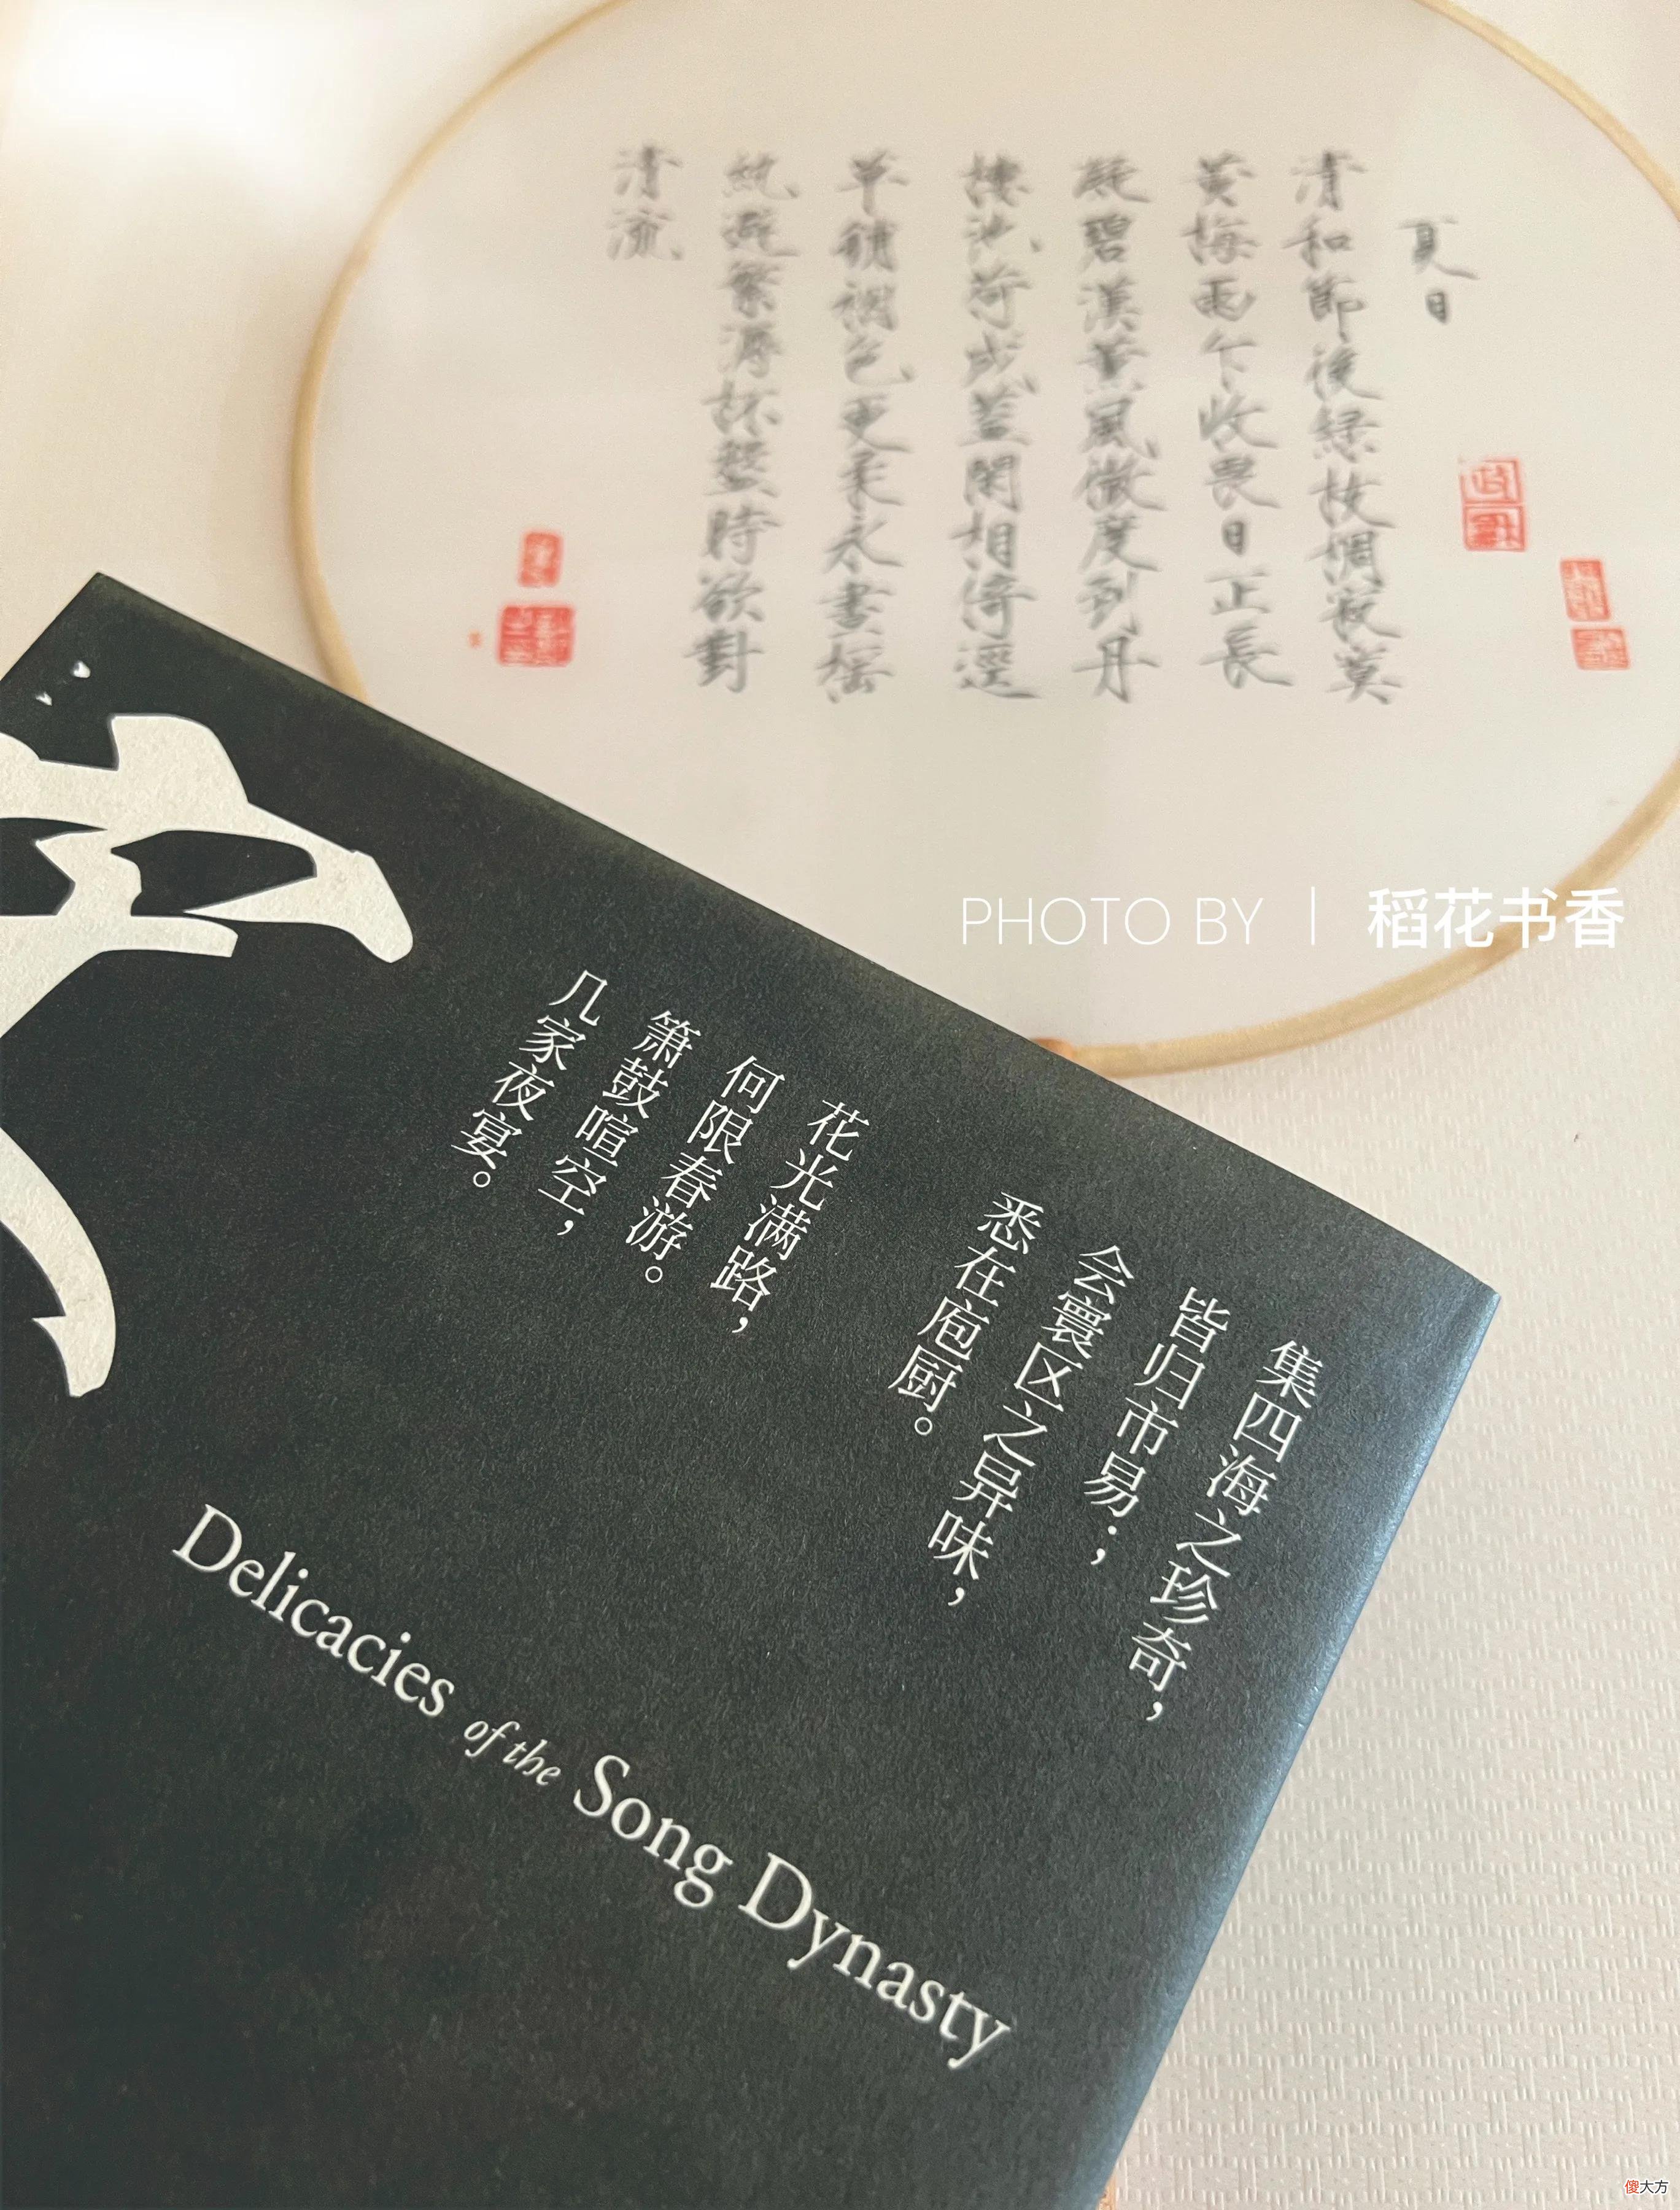 夏日
清和節後緑枝稠寂寞
黄梅雨乍收畏日正長
凝碧漢薫風微度到丹
樓池荷成蓋閑相倚逕
草鋪裀色更柔永晝搖
紈避繁溽杯盤時欲對
清流
PHOTO BY | 稻花书香
集四海之珍奇，
皆归市易；
会寰区之异味，
悉在庖厨。
花光满路，
何限春游。
箫鼓喧空，
几家夜宴。
Delicacies of the Song Dynasty
傻大方